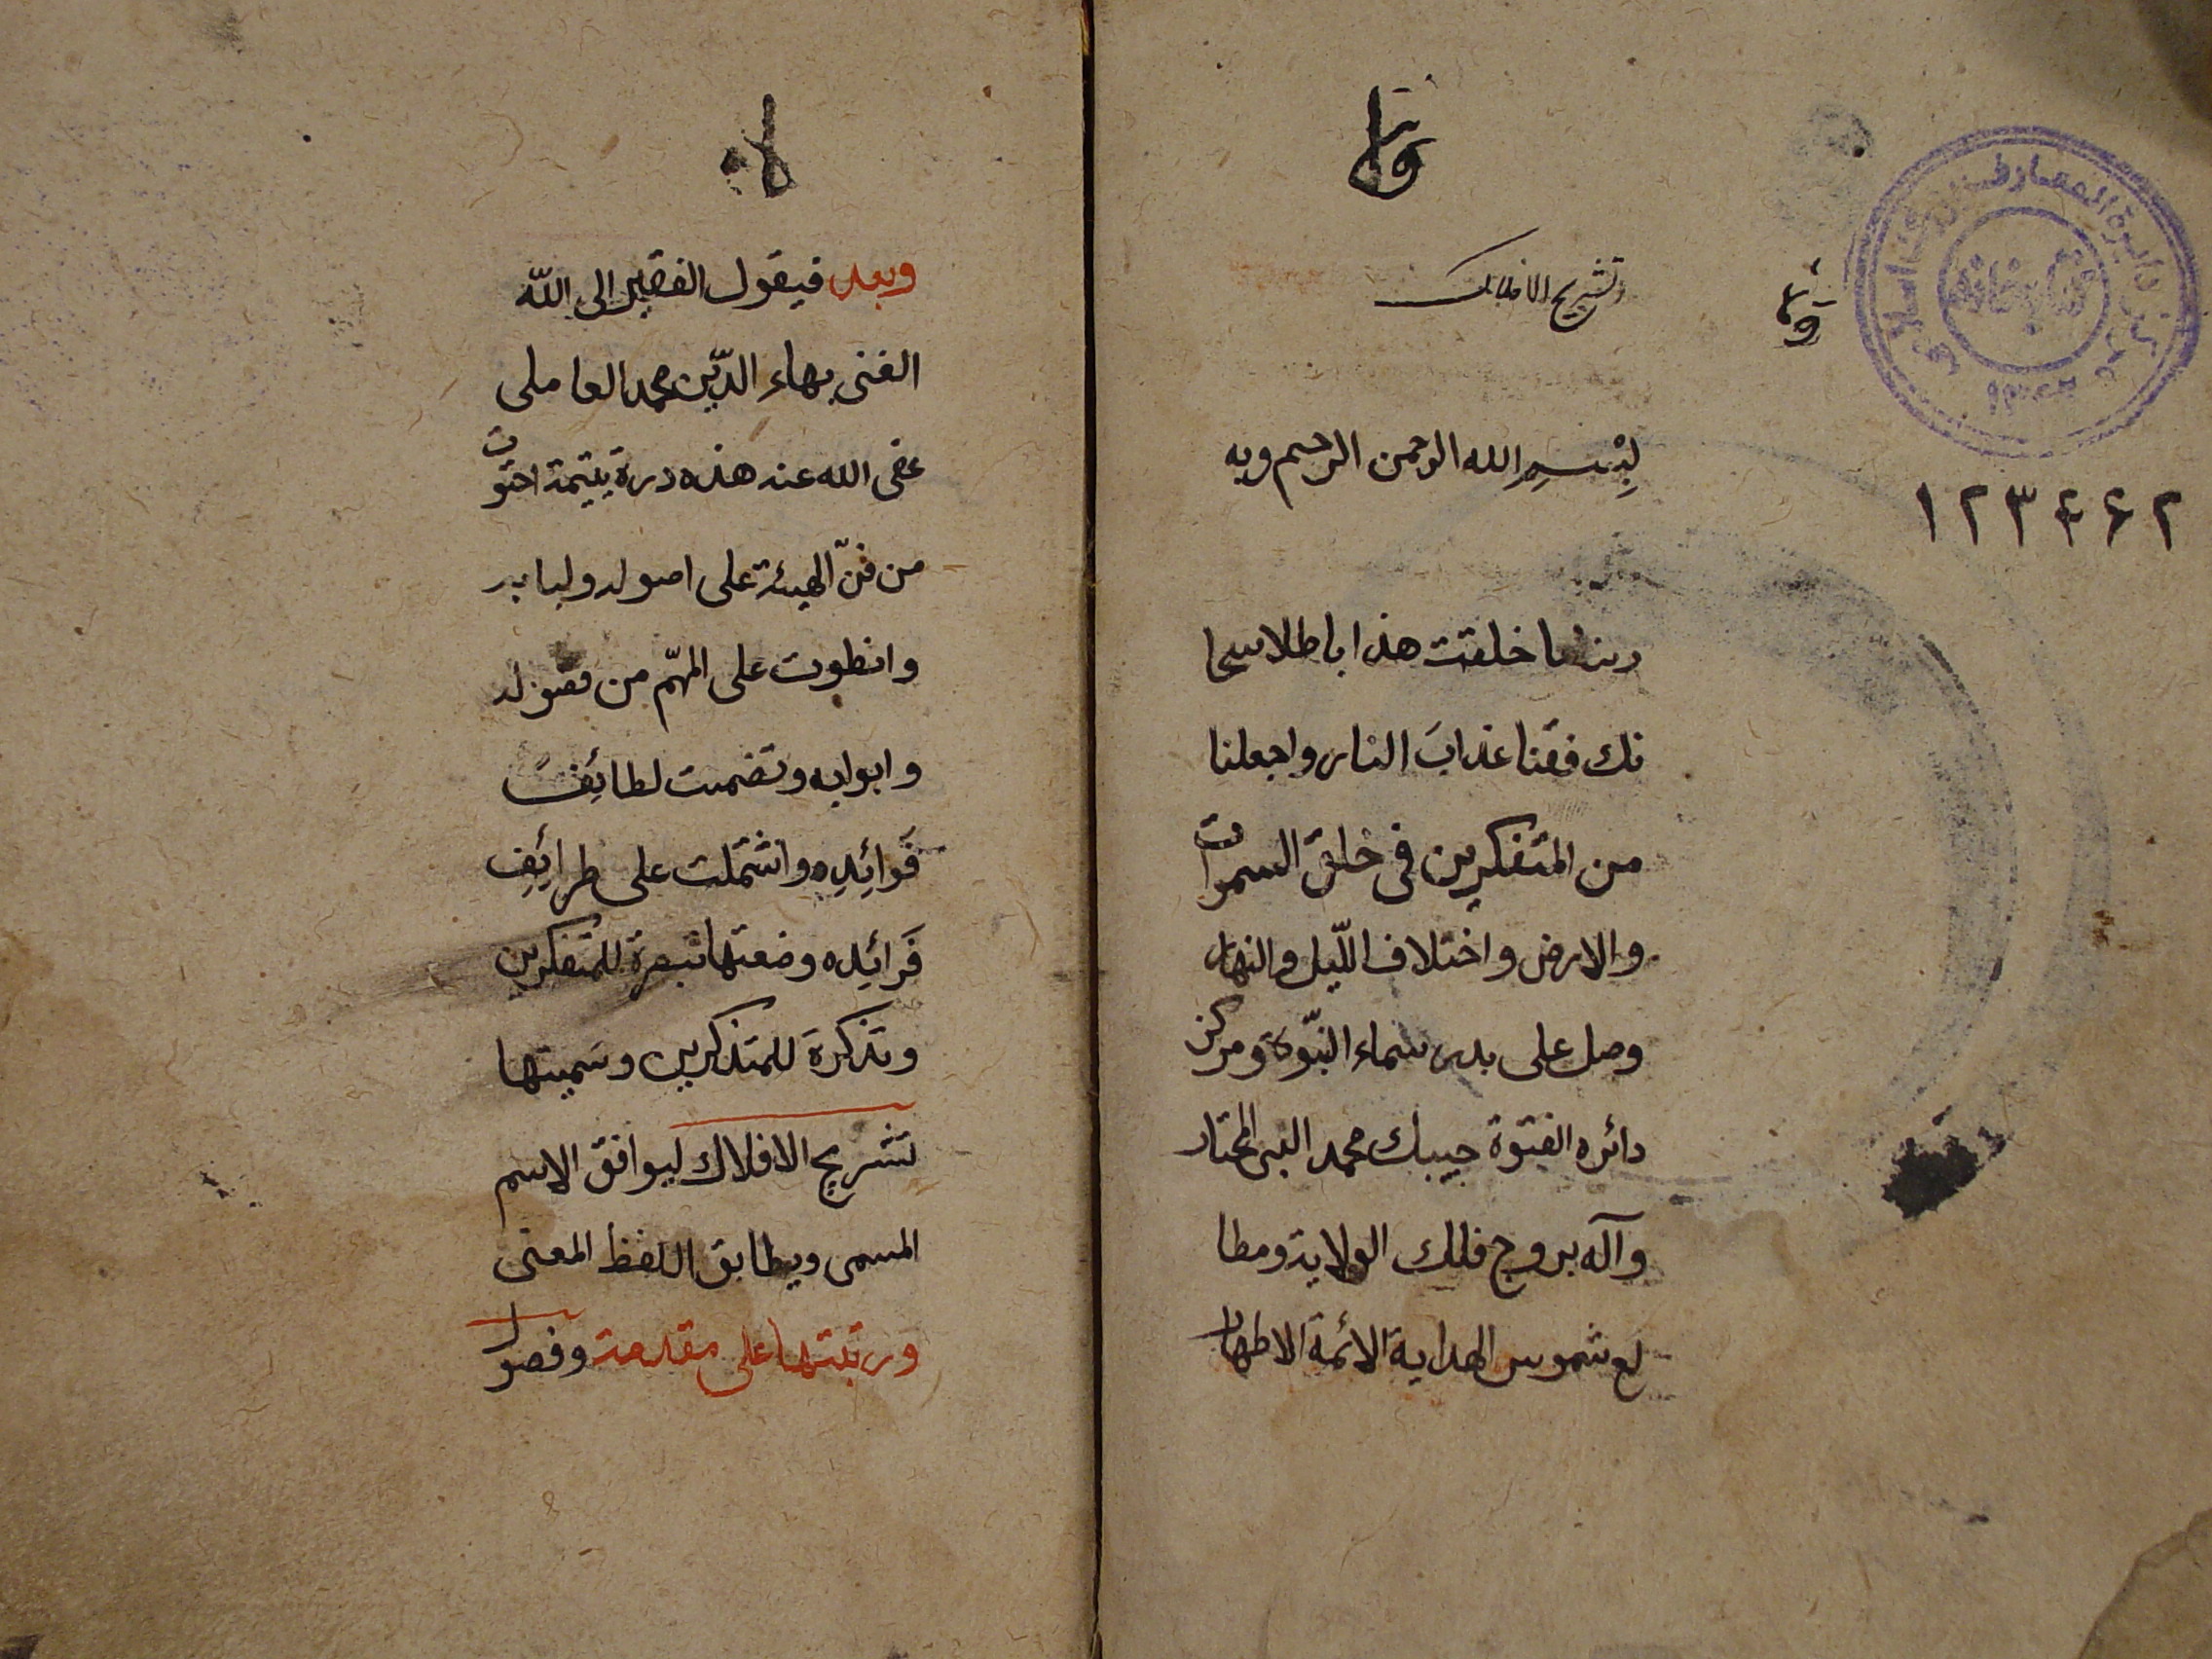 تشریح الافلاک
وقف
مرکز دایرة المعارف بزرگ اسلامی
کتابخانه
۱۲۳۴۶۲
بِسْمِ الله الرحمن الرحیم وبه
ربنا ما خلقت هذا باطلا سبحا
نك فقنا عذابَ النار واجعلنا
من المتفكرين فی خلق السموات
والارض واختلاف اللّیل والنهار
وصل علی بدر سماء النبّوة ومرکز
دائره الفتوة حبیبك محمد النبی المختار
وآله بروج فلك الولایة ومطا
لع شموس الهدایة الائمة الاطهار
وبعد فیقول الفقیر الی اللّه
الغنی بهاء الدّین محمد العاملی
عفی الله عنه هذه درة یتیمة احتوت
من فنّ الهیئة علی اصوله ولبابه
وانطوت علی المهّم من فصوله
وابوابه وتضمنت لطائِف
فَوائِدِه واشتملت علی طرائِف
فَرائِده وضعتها تبصرة للمتفکرین
وتذکرةَ للمتذکرین وسمیتها
تشریح الافلاك لیوافق الاسم
المسمی ویطابق اللفظ المعنی
ورتبتها علی مقدمة وفصول